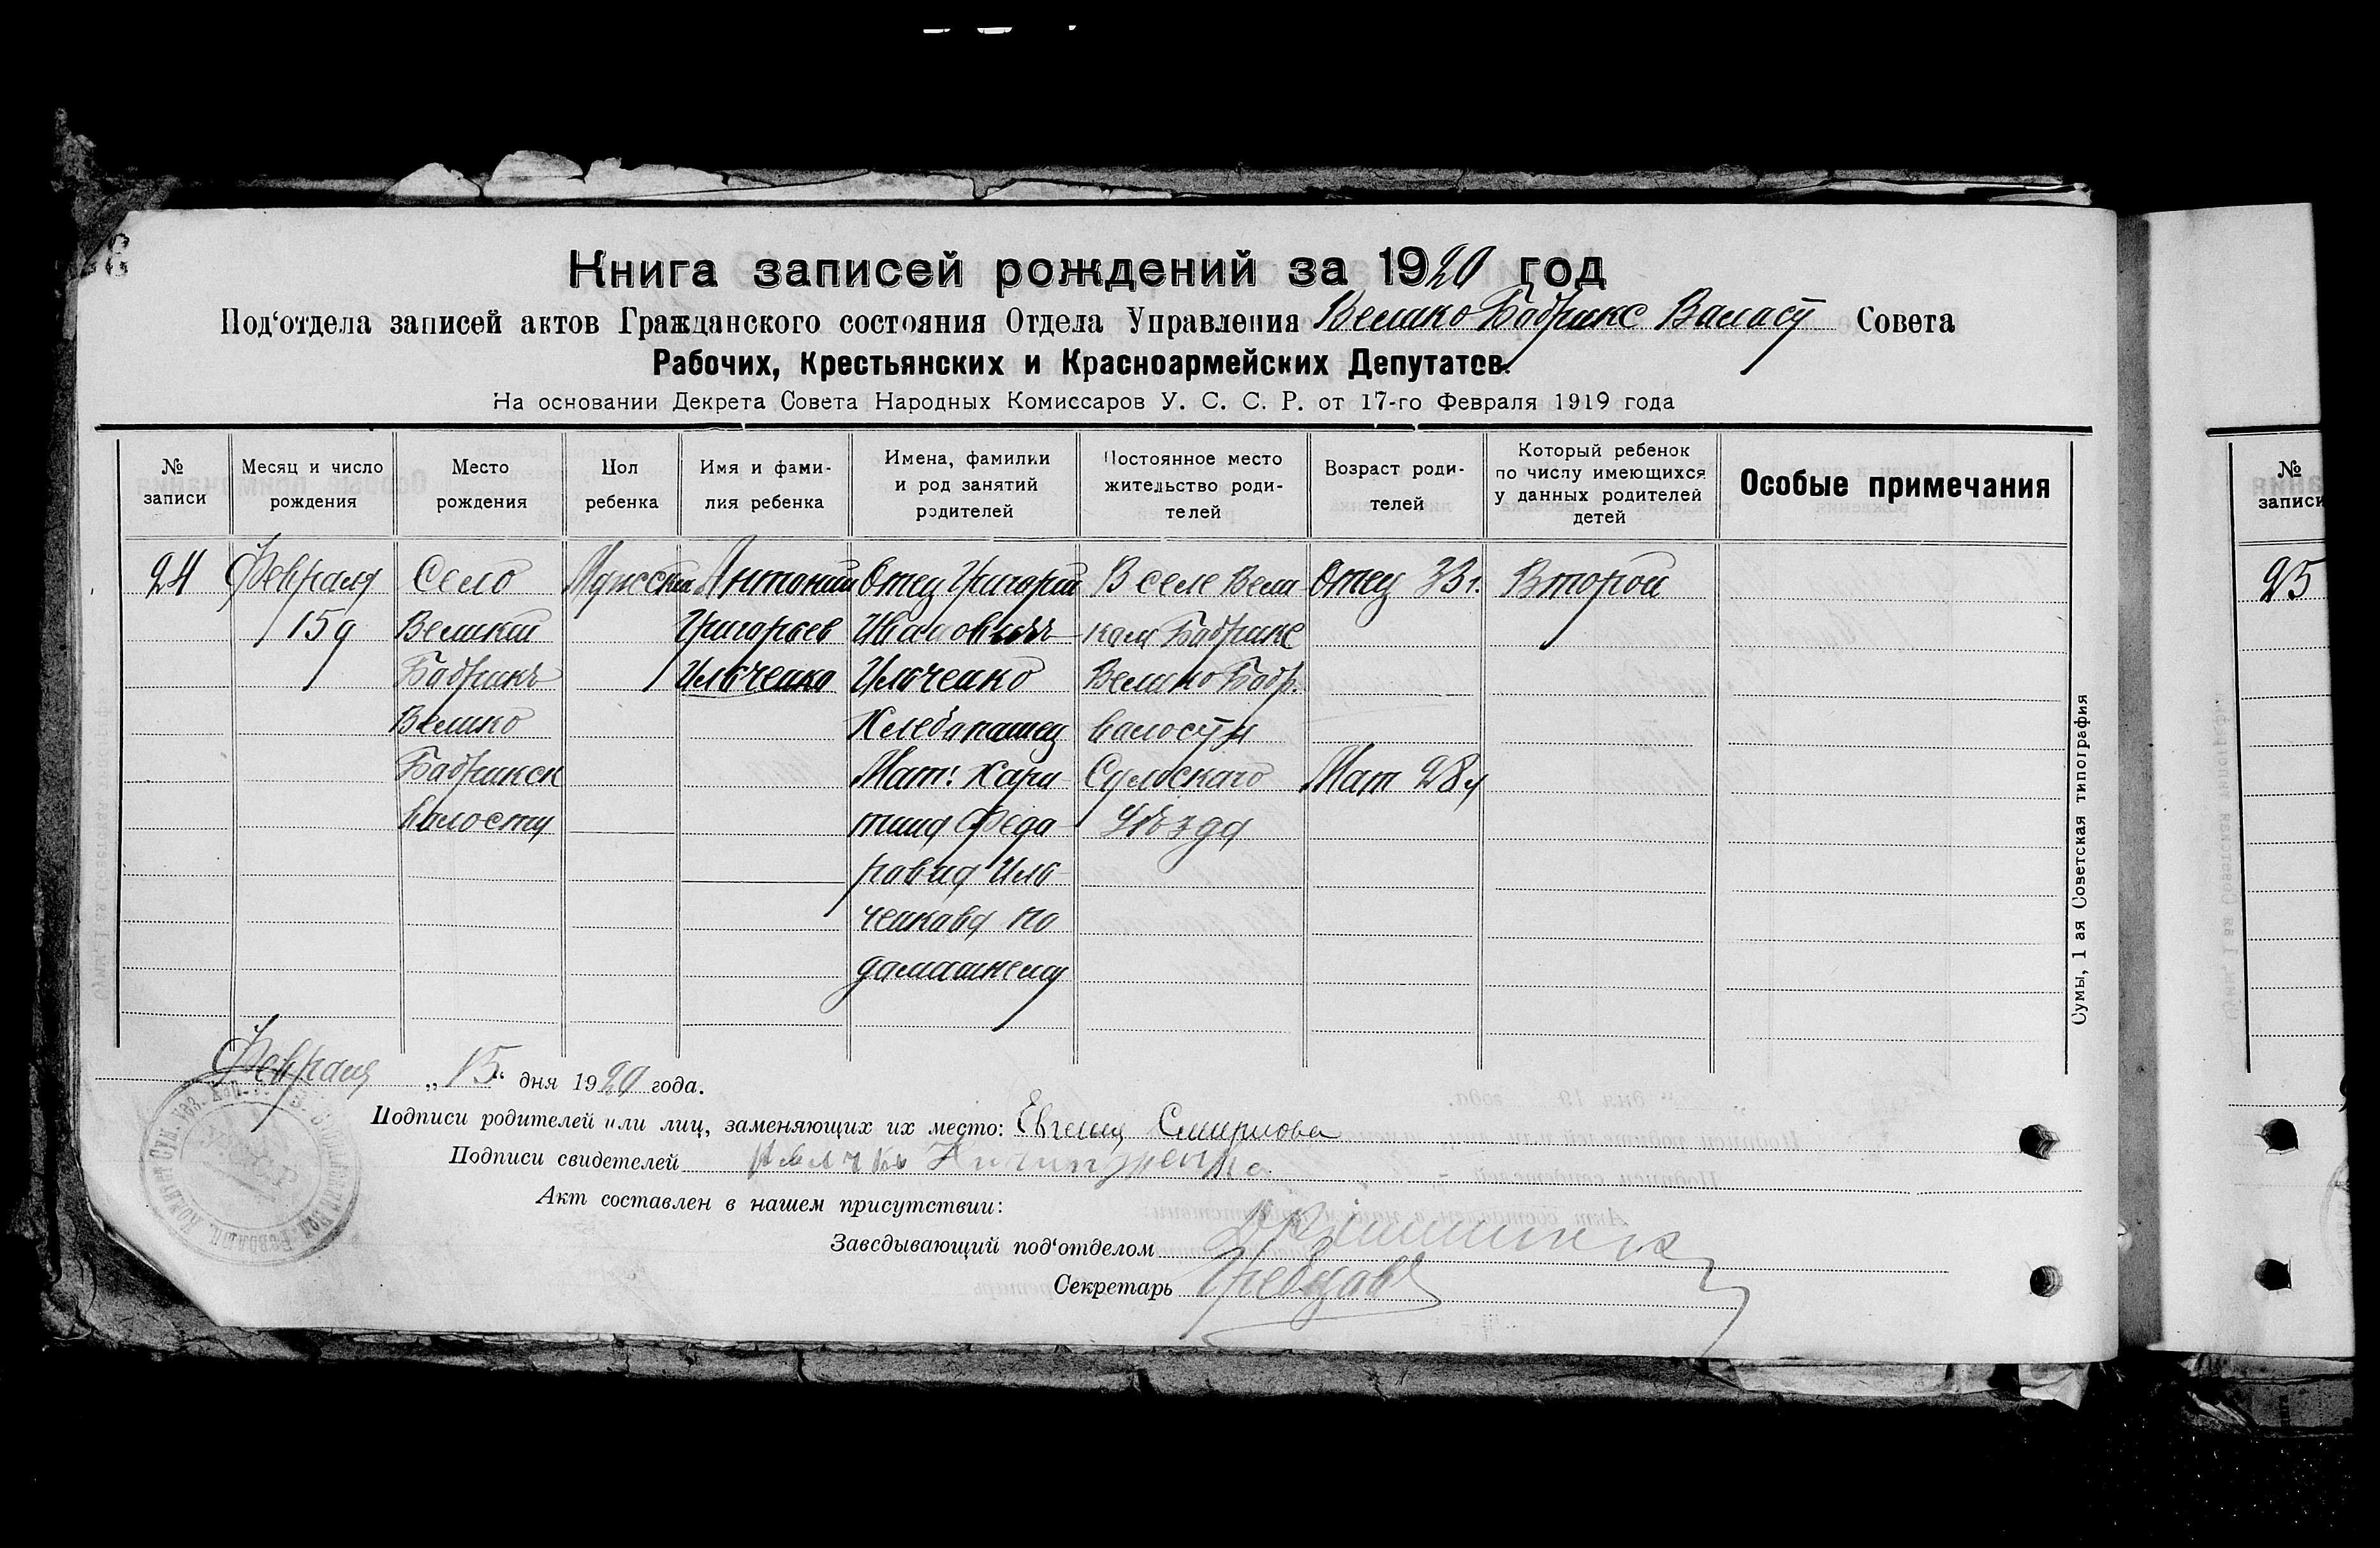 Книга записей рождений за 1920 год
Под‘отдела записей актов Гражданского состояния Отдела Управления Велико Бобрикс Валасț Совета
Рабочих, Крестьянских и Красноармейских Депутатов.
На основании Декрета Совета Народных Комиссаров У. С. С. Р. от 17-го Февраля 1919 года
№ записи
Месяц и число рождения
Место рождения
Пол ребенка
Имя и фами-
лия ребенка
Имена, фамилии
и род занятий
родителей
Постоянное место
жительство роди-
телей
Возраст роди-
телей
Который ребенок
по числу имеющихся
у данных родителей
детей
Особые примечания
№ записи
24
Февраля
15 д
Село
Великий
Бобрикъ
Велико
Бобрикск
волости
Мужский
Антоний
Григорьев
Ильченко
Отец Григорий
Ивановичъ
Ильченко
Хлебапашец
Мат: Хари-
тина Федо-
ровна Иль-
ченкава по
дамашнему
В селе Вели-
ком Бобрике
Велико Бобр.
валости
Сумскаго
Уезда
Отец 33 г.
Мат 28 л
Второй
25
Февраля „15“ дня 1920 года.
Подписи родителей или лиц, заменяющих их место: Евгения Смирнова
Подписи свидетелей
Акт составлен в нашем присутствии:
Заведывающий под‘отделом
Секретарь
Сумы, 1 ая Советская типография